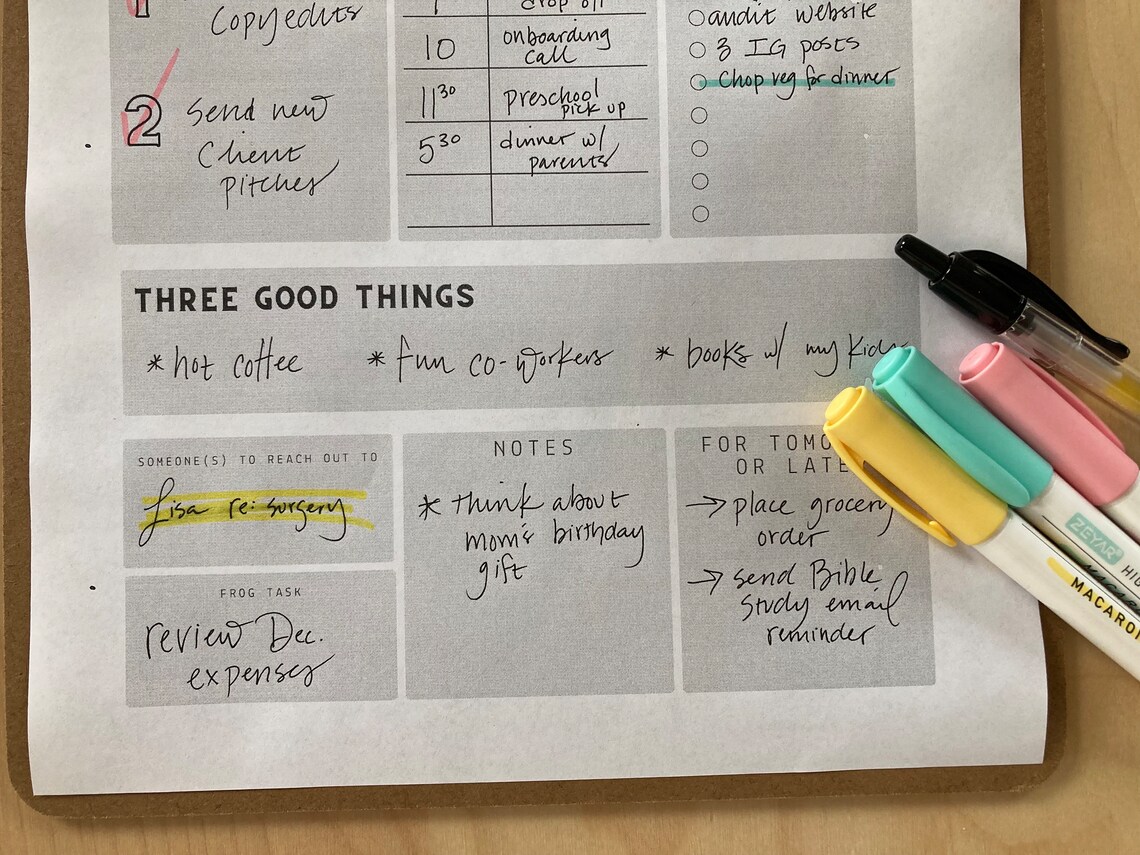 Copyedits
2 Send new
Client
pitches
drop off
10 onboarding
call
11 30 preschool
pick up
5 30 dinner w/
parents
audit website
3 IG posts
Chop veg for dinner
THREE GOOD THINGS
* hot coffee * fun co-workers * books w/ my kids
SOMEONE(S) TO REACH OUT TO
Lisa re: surgery
FROG TASK
review Dec.
expenses
NOTES
* think about
mom's birthday
gift
FOR TOMO
OR LATE
→ place grocery
order
→ send Bible
Study email
reminder
ZEYAR
HI
MACARO